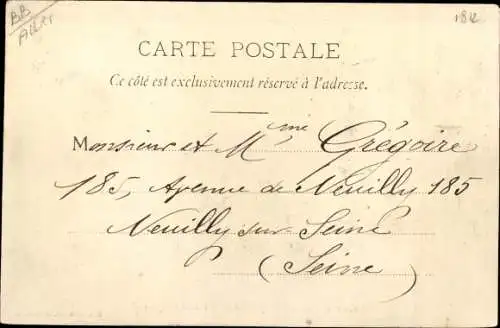 BB
1812
CARTE POSTALE
Ce côté est exclusivement réservé à l'adresse.
Monsieur et Mme Grégoire
185, Avenue de Neuilly 185
Neuilly sur Seine
(Seine)